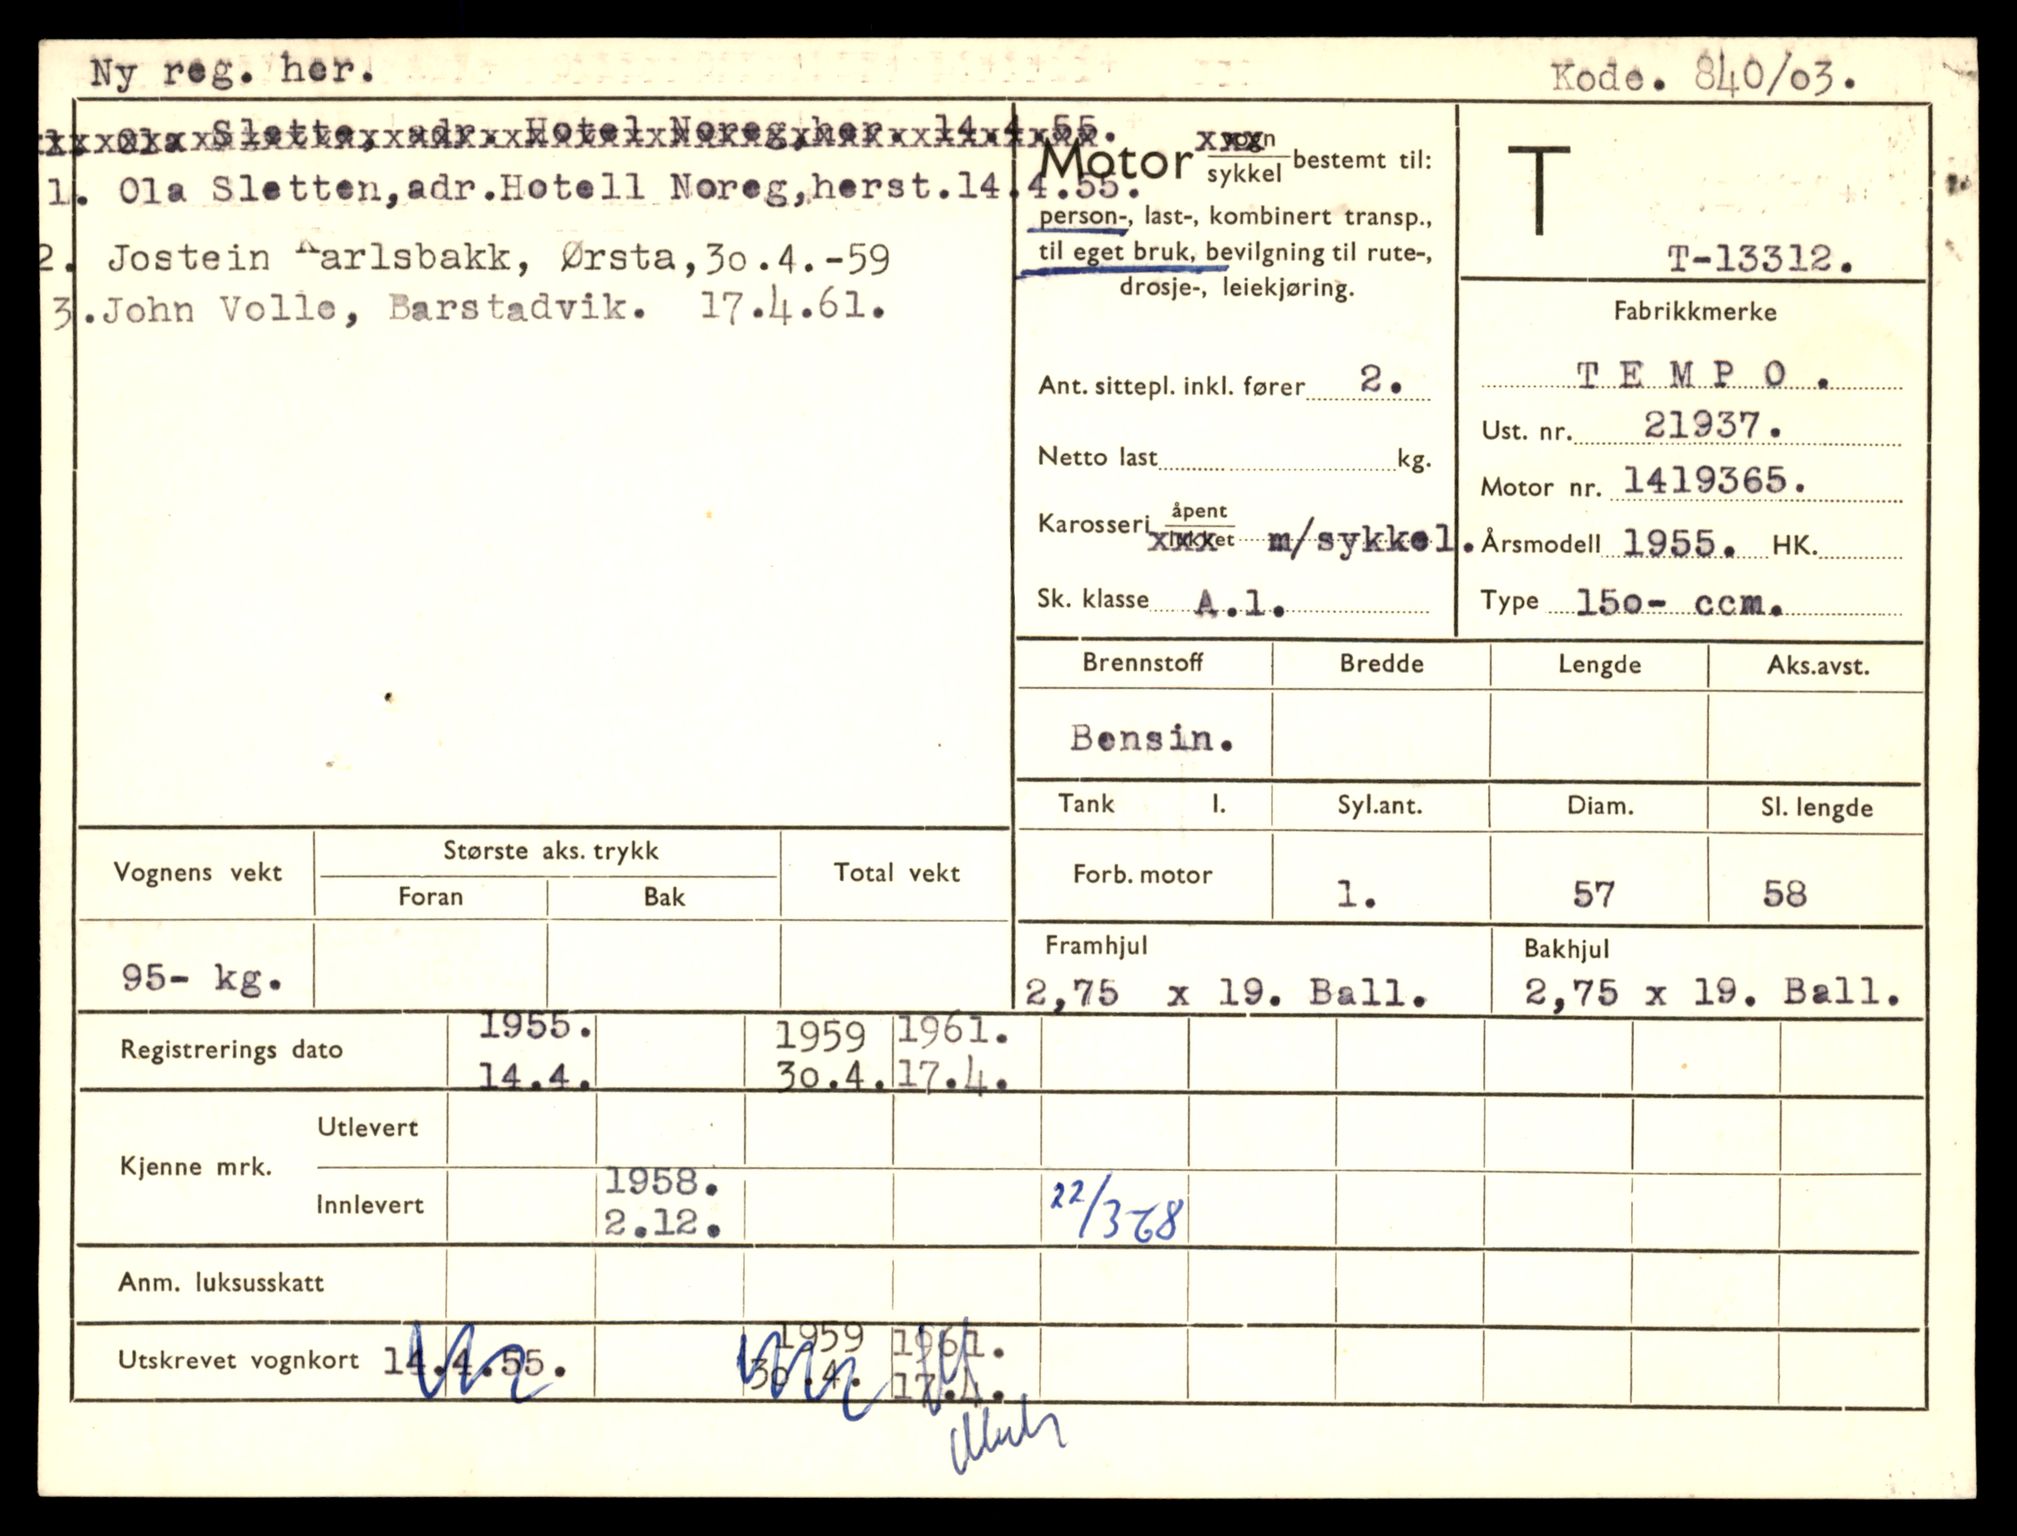 Ny reg. her.
Kode. 840/03.
1. Ola Slette, adr. Hotel Noreg,her. 14.4.55.
1. Ola Sletten,adr.Hotell Noreg,herst.14.4.55.
2. Jostein Aarlsbakk, Ørsta,3o.4.-59
3.John Volle, Barstadvik. 17.4.61.
Motor vogn
sykkel
bestemt til:
person-, last-, kombinert transp.,
til eget bruk, bevilgning til rute-,
drosje-, leiekjøring.
Ant. sittepl. inkl. fører 2.
Netto last kg.
Karosseri åpent
lukket m/sykkel.
Sk. klasse A.1.
T
T-13312.
Fabrikkmerke
T E M P O .
Ust. nr. 21937.
Motor nr. 1419365.
Årsmodell 1955. HK.
Type 15o- ccm.
Brennstoff Bredde Lengde Aks.avst.
Bensin.
Tank l. Syl.ant. Diam. Sl. lengde
Forb. motor 1. 57 58
Framhjul Bakhjul
2,75 x 19. Ball. 2,75 x 19. Ball.
Vognens vekt Største aks. trykk Total vekt
Foran Bak
95- kg.
Registrerings dato 1955. 1959 1961.
14.4. 3o.4. 17.4.
Kjenne mrk. Utlevert
Innlevert 1958. 22/3-68
2.12.
Anm. luksusskatt
Utskrevet vognkort 14.4.55. 1959 1961.
3o.4. 17.4.